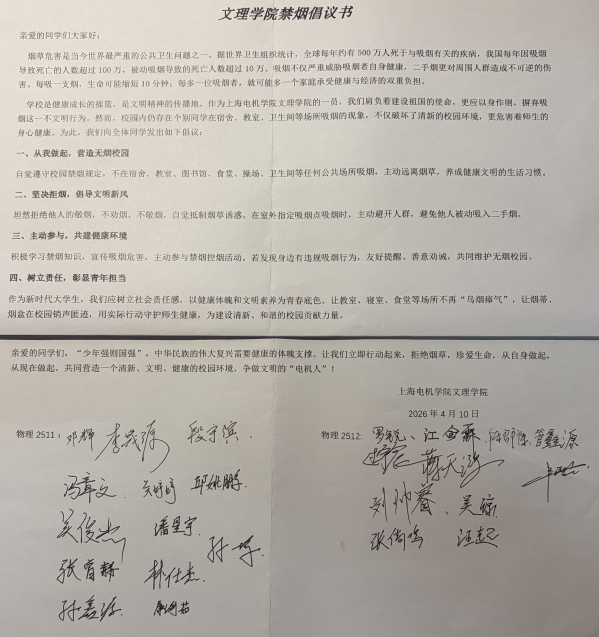 文理学院禁烟倡议书
亲爱的同学们大家好：
烟草危害是当今世界最严重的公共卫生问题之一。据世界卫生组织统计，全球每年约有 500 万人死于与吸烟有关的疾病，我国每年因吸烟
导致死亡的人数超过 100 万，被动吸烟导致的死亡人数超过 10 万。吸烟不仅严重威胁吸烟者自身健康，二手烟更对周围人群造成不可逆的伤
害，每吸一支烟，生命可能缩短 10 分钟；每多一位吸烟者，就可能多一个家庭承受健康与经济的双重负担。
学校是健康成长的摇篮，是文明精神的传播地。作为上海电机学院文理学院的一员，我们肩负着建设祖国的使命，更应以身作则，摒弃吸
烟这一不文明行为。然而，校园内仍存在个别同学在宿舍、教室、卫生间等场所吸烟的现象，不仅破坏了清新的校园环境，更危害着师生的
身心健康。为此，我们向全体同学发出如下倡议：
一、从我做起，营造无烟校园
自觉遵守校园禁烟规定，不在宿舍、教室、图书馆、食堂、操场、卫生间等任何公共场所吸烟，主动远离烟草，养成健康文明的生活习惯。
二、坚决拒烟，倡导文明新风
坦然拒绝他人的敬烟，不劝烟、不敬烟，自觉抵制烟草诱惑。在室外指定吸烟点吸烟时，主动避开人群，避免他人被动吸入二手烟。
三、主动参与，共建健康环境
积极学习禁烟知识，宣传吸烟危害，主动参与禁烟控烟活动。若发现身边有违规吸烟行为，友好提醒、善意劝诫，共同维护无烟校园。
四、树立责任，彰显青年担当
作为新时代大学生，我们应树立社会责任感，以健康体魄和文明素养为青春底色。让教室、寝室、食堂等场所不再“乌烟瘴气”，让烟蒂、
烟盒在校园销声匿迹，用实际行动守护师生健康，为建设清新、和谐的校园贡献力量。
亲爱的同学们，“少年强则国强”，中华民族的伟大复兴需要健康的体魄支撑。让我们立即行动起来，拒绝烟草，珍爱生命，从自身做起，
从现在做起，共同营造一个清新、文明、健康的校园环境，争做文明的“电机人”！
上海电机学院文理学院
2026 年 4 月 10 日
物理 2511： 邓辉 李茂源 段宇滨
冯章文 邱姚鹏
吴俊杰 潘星宇
孙
张育赫 林仕杰
孙鑫
物理 2512: 罗锐、江 管鑫源
蒋天
刘帅 吴
张倚 汪起